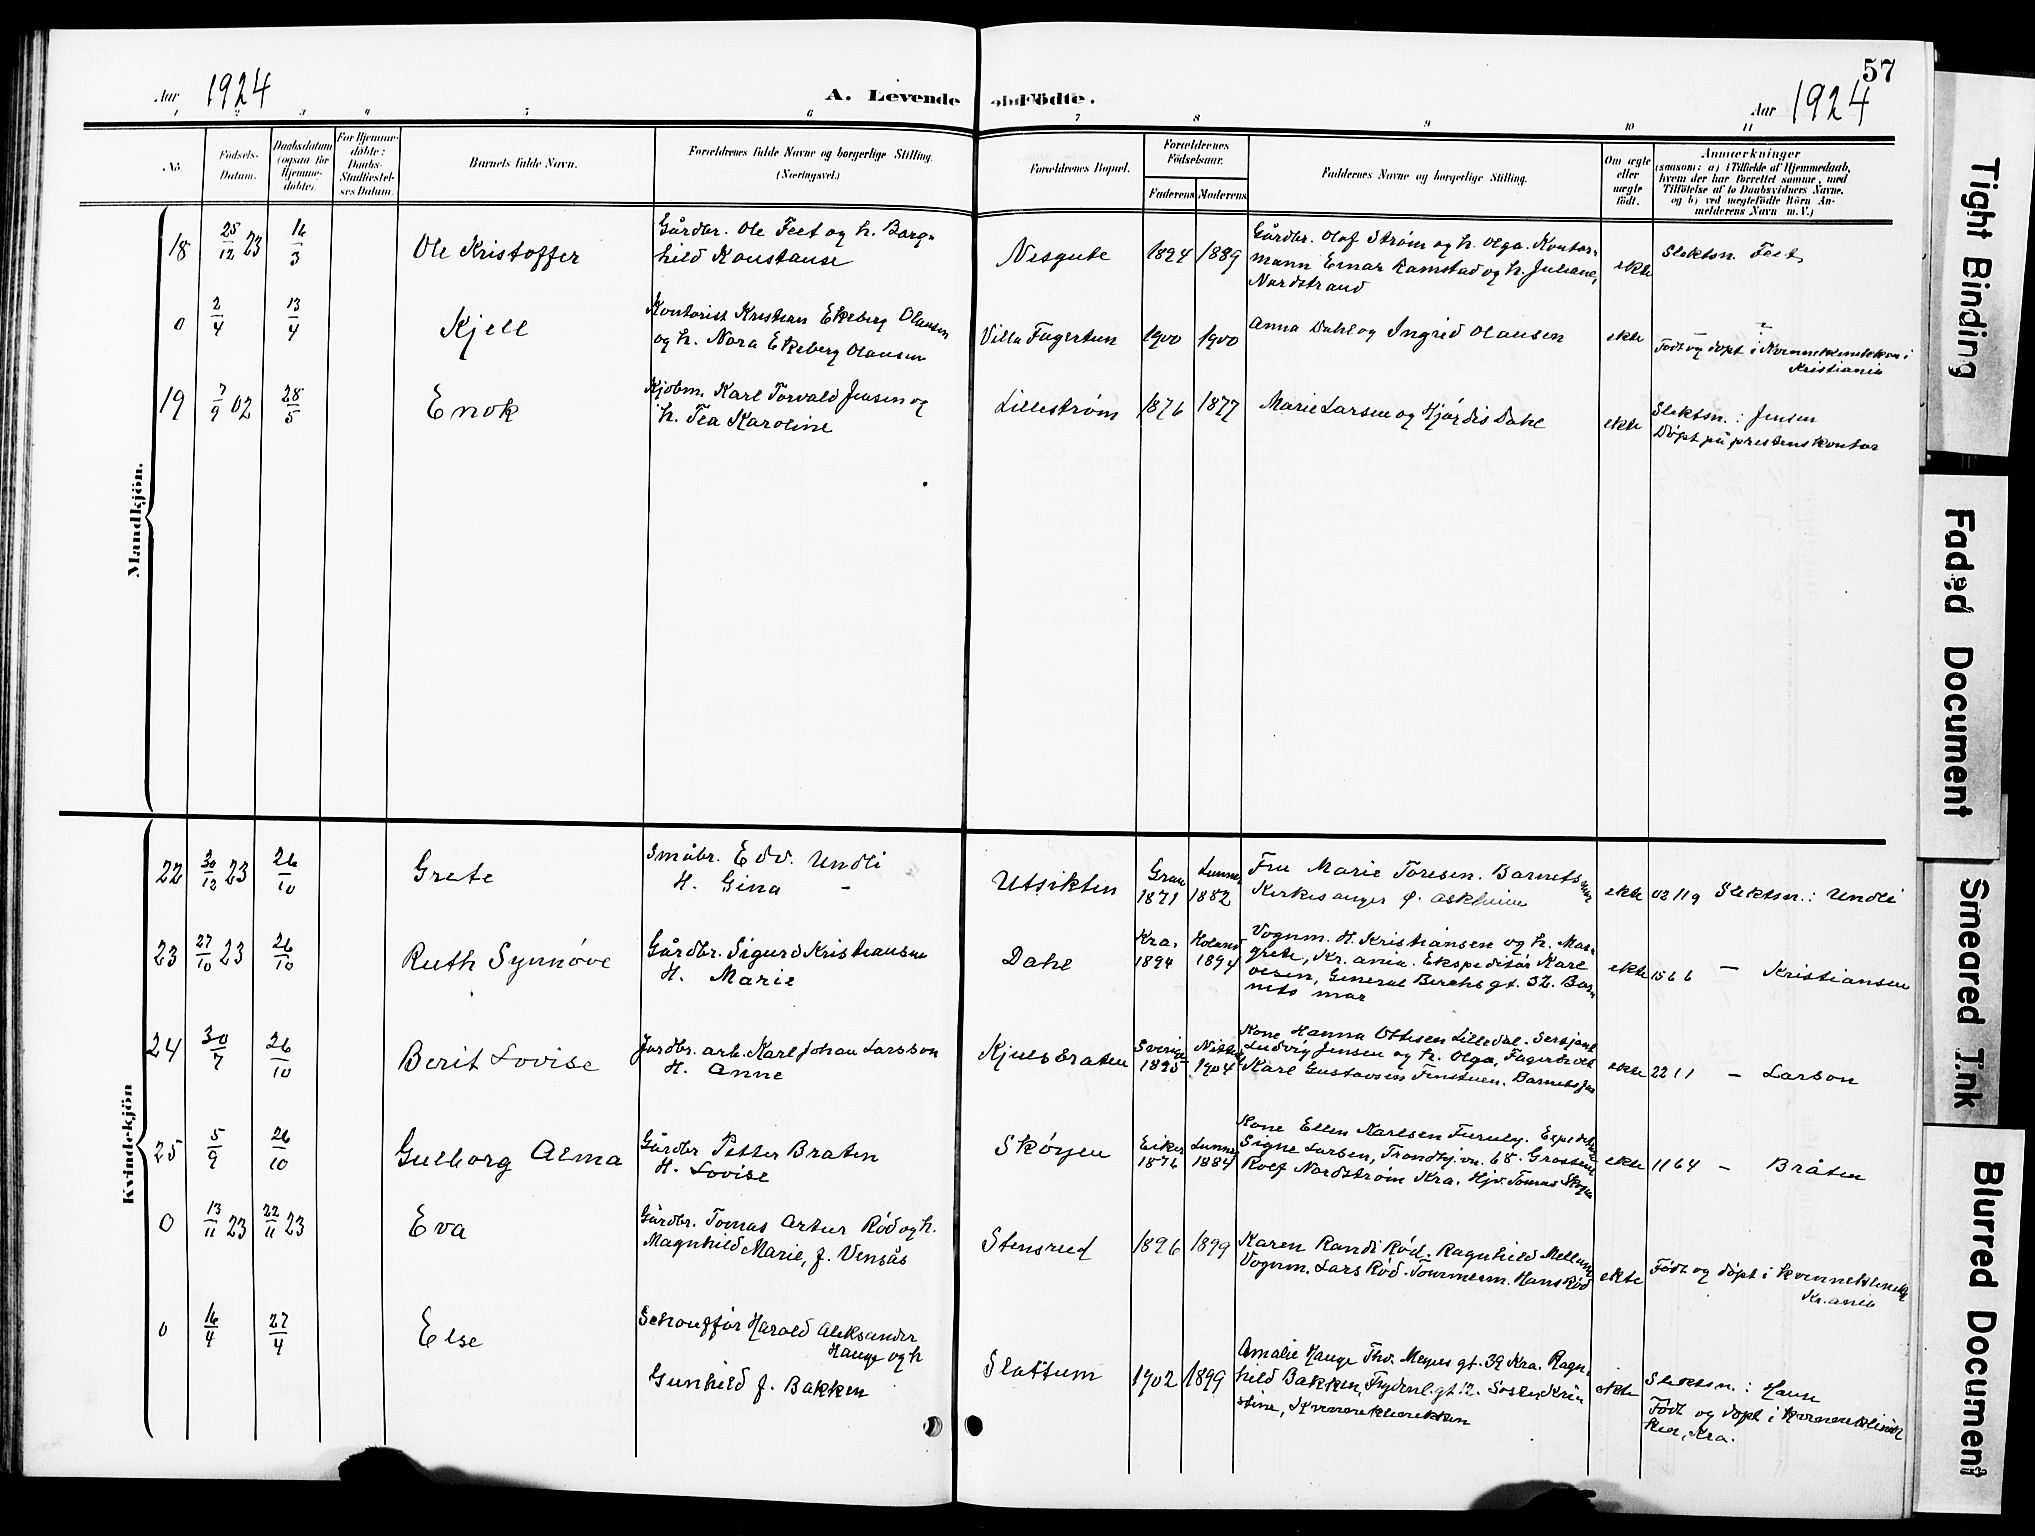 57
Aar 1924 A. Levende Födte. Aar 1924
1 2 3 4 5 6 7 8 9 10 11
No. Födsels-Datum. Daabsdatum (ogsaa for Hjemmedöbte). For Hjemmedöbte: Daabs-Stadfæstelses Datum. Barnets fulde Navn. Forældrenes fulde Navne og borgerlige Stilling. (Næringsvei.) Forældrenes Bopæl. Forældrenes Födselsaar. Faderens Moderens Faddernes Navne og borgerlige Stilling. Om ægte eller uægte født. Anmærkninger
(saasom: a) i Tilfælde af Hjemmedaab, hvem der har forrettet samme, med Tilföielse af to Daabsvidners Navne, og b) ved uægtefödte Börn Anmelderens Navn m. V.)
Mandkjön.
18 25/12 23 16/3 Ole Kristoffer
Gårdbr. Ole Feet og h. Borg-
hild Konstanse
Nesgute 1894 1889
Gårdbr. Olaf Strøm og h. Olga. Kontor-
mann Einar Ramstad og h. Juliane,
Nordstrand
ekte
Slektsn. Feet
0 2/4 13/4 Kjell
Kontorist Kristian Ekeberg Olausen
og h. Nora Ekeberg Olausen
Villa Fagertun 1900 1900
Anna Dahl og Ingrid Olausen
ekte
Født og døpt i Kvinneklinikken i
Kristiania
19 7/9 02 28/5 Enok
Kjøbm. Karl Torvald Jensen og
h. Tea Karoline
Lillestrøm 1876 1877
Marie Larsen og Hjørdis Dahl
ekte
Slektsn.: Jensen
Døpt på prestens kontor
Kvindekjön
22 30/12 23 26/10 Grete
Småbr. Edv. Undli
H. Gina -
Utsikten Gran 1871 Lunner 1882
Fru Marie Toresen. Barnets mor
Kirkesanger Ø. Askheim
ekte 02119 Slektsn.: Undli
23 27/10 23 26/10 Ruth Synnøve
Gårdbr. Sigurd Kristiansen
H. Marie
Dahl Kra. 1894 Høland 1894
Vognm. H. Kristiansen og h. Mar-
grete, Kr.ania. Ekspeditør Karl
Olsen, General Berchs gt. 32. Bar-
nets mor
ekte 1566 — Kristiansen
24 30/7 26/10 Berit Lovise
Jordbr. arb. Karl Johan Larsson
H. Anne
Kjulsbraten Sverige 1895 1904
Kone Hanna Ottesen Lilledal. Sersjant
Ludvig Jensen og h. Olga, Fagertvet
Karl Gustavsen Finstuen. Barnets far
ekte 2211 — Larson
25 5/9 26/10 Gulborg Alma
Gårdbr Petter Braten
H. Lovise
Skøyen Eiker 1876 Lunner 1884
Kone Ellen Karlsen Furuly.
Signe Larsen, Trondhj.vn. 68. Grosserer
Rolf Nordstrøm Kra. Hjv. Tomas Skøyen
ekte 1164 — Bråten
0 13/11 23 22/11 23 Eva
Gårdbr. Tomas Artur Rød og h.
Magnhild Marie, f. Vensås
Stensrud 1896 1899
Karen Randi Rød. Ragnhild Mellum
Vognm. Lars Rød. Tourmesm. Hans Rød
ekte
Født og døpt i kvinneklinikk
Kr.ania
0 16/4 27/4 Else
Schouffør Harald Aleksander
Hauge og h
Gunhild f. Bakken
Slattum 1902 1899
Amalie Hauge Thv. Meyers gt. 39 Kra. Ragn-
hild Bakken, Frydenl.gt. 12. Søster Kris-
tine, Kvinneklinikken
ekte
Slektsn.:
Født og døpt i kvinneklinik
ken, Kra.
Tight Binding
Faded Document
Smeared Ink
Blurred Document